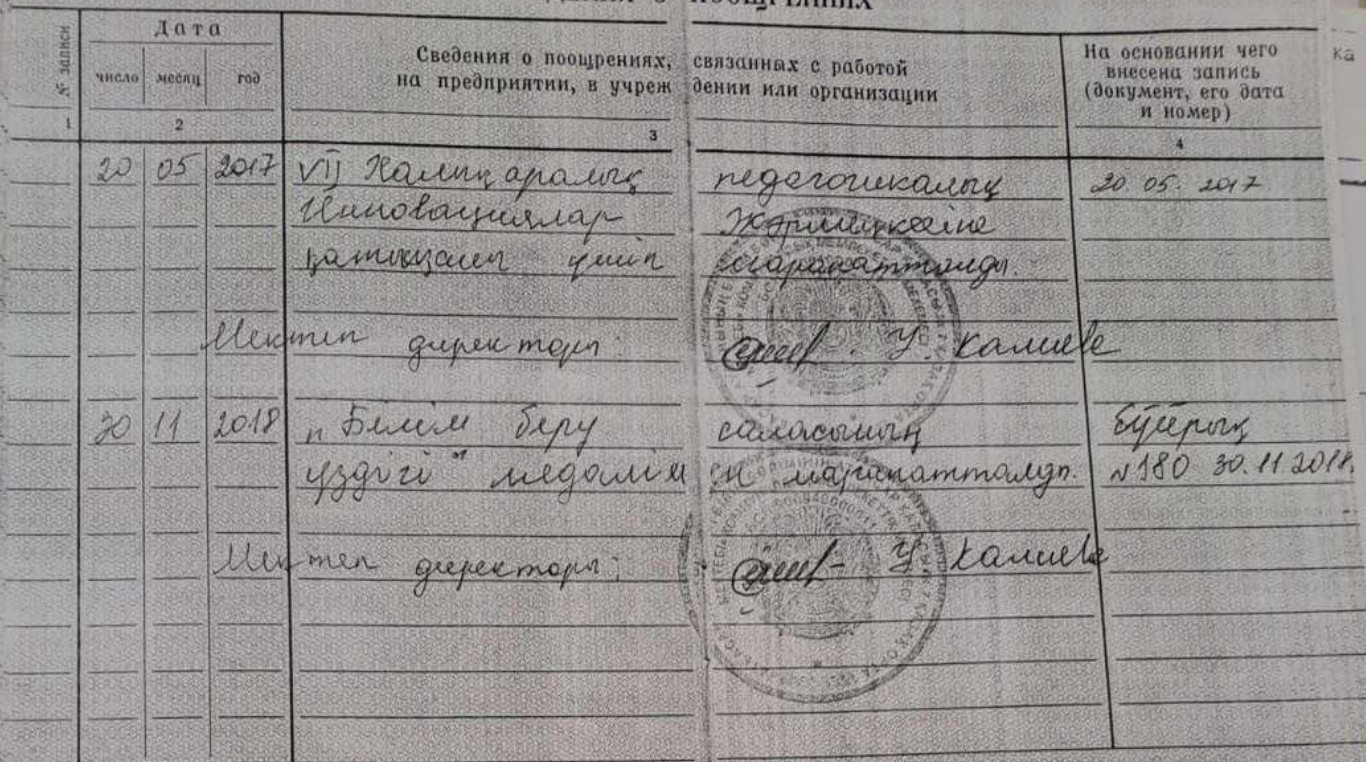 № записи
Дата
число месяц год
Сведения о поощрениях, связанных с работой
на предприятии, в учреждении или организации
На основании чего
внесена запись
(документ, его дата
и номер)
ка
1 2 3 4
20 05 2017 VII Халықаралық педогогикалық 20 05. 2017
Инновациялар Жәрмеңкесіне
қатысқаны үшін марапатталды.
Мектеп директоры: У Калиева
30 11 2018 "Білім беру саласының Бұйрық
үздігі" медалімен марапатталды. №180 30.11 2018.
Мектеп директоры: У Калиева